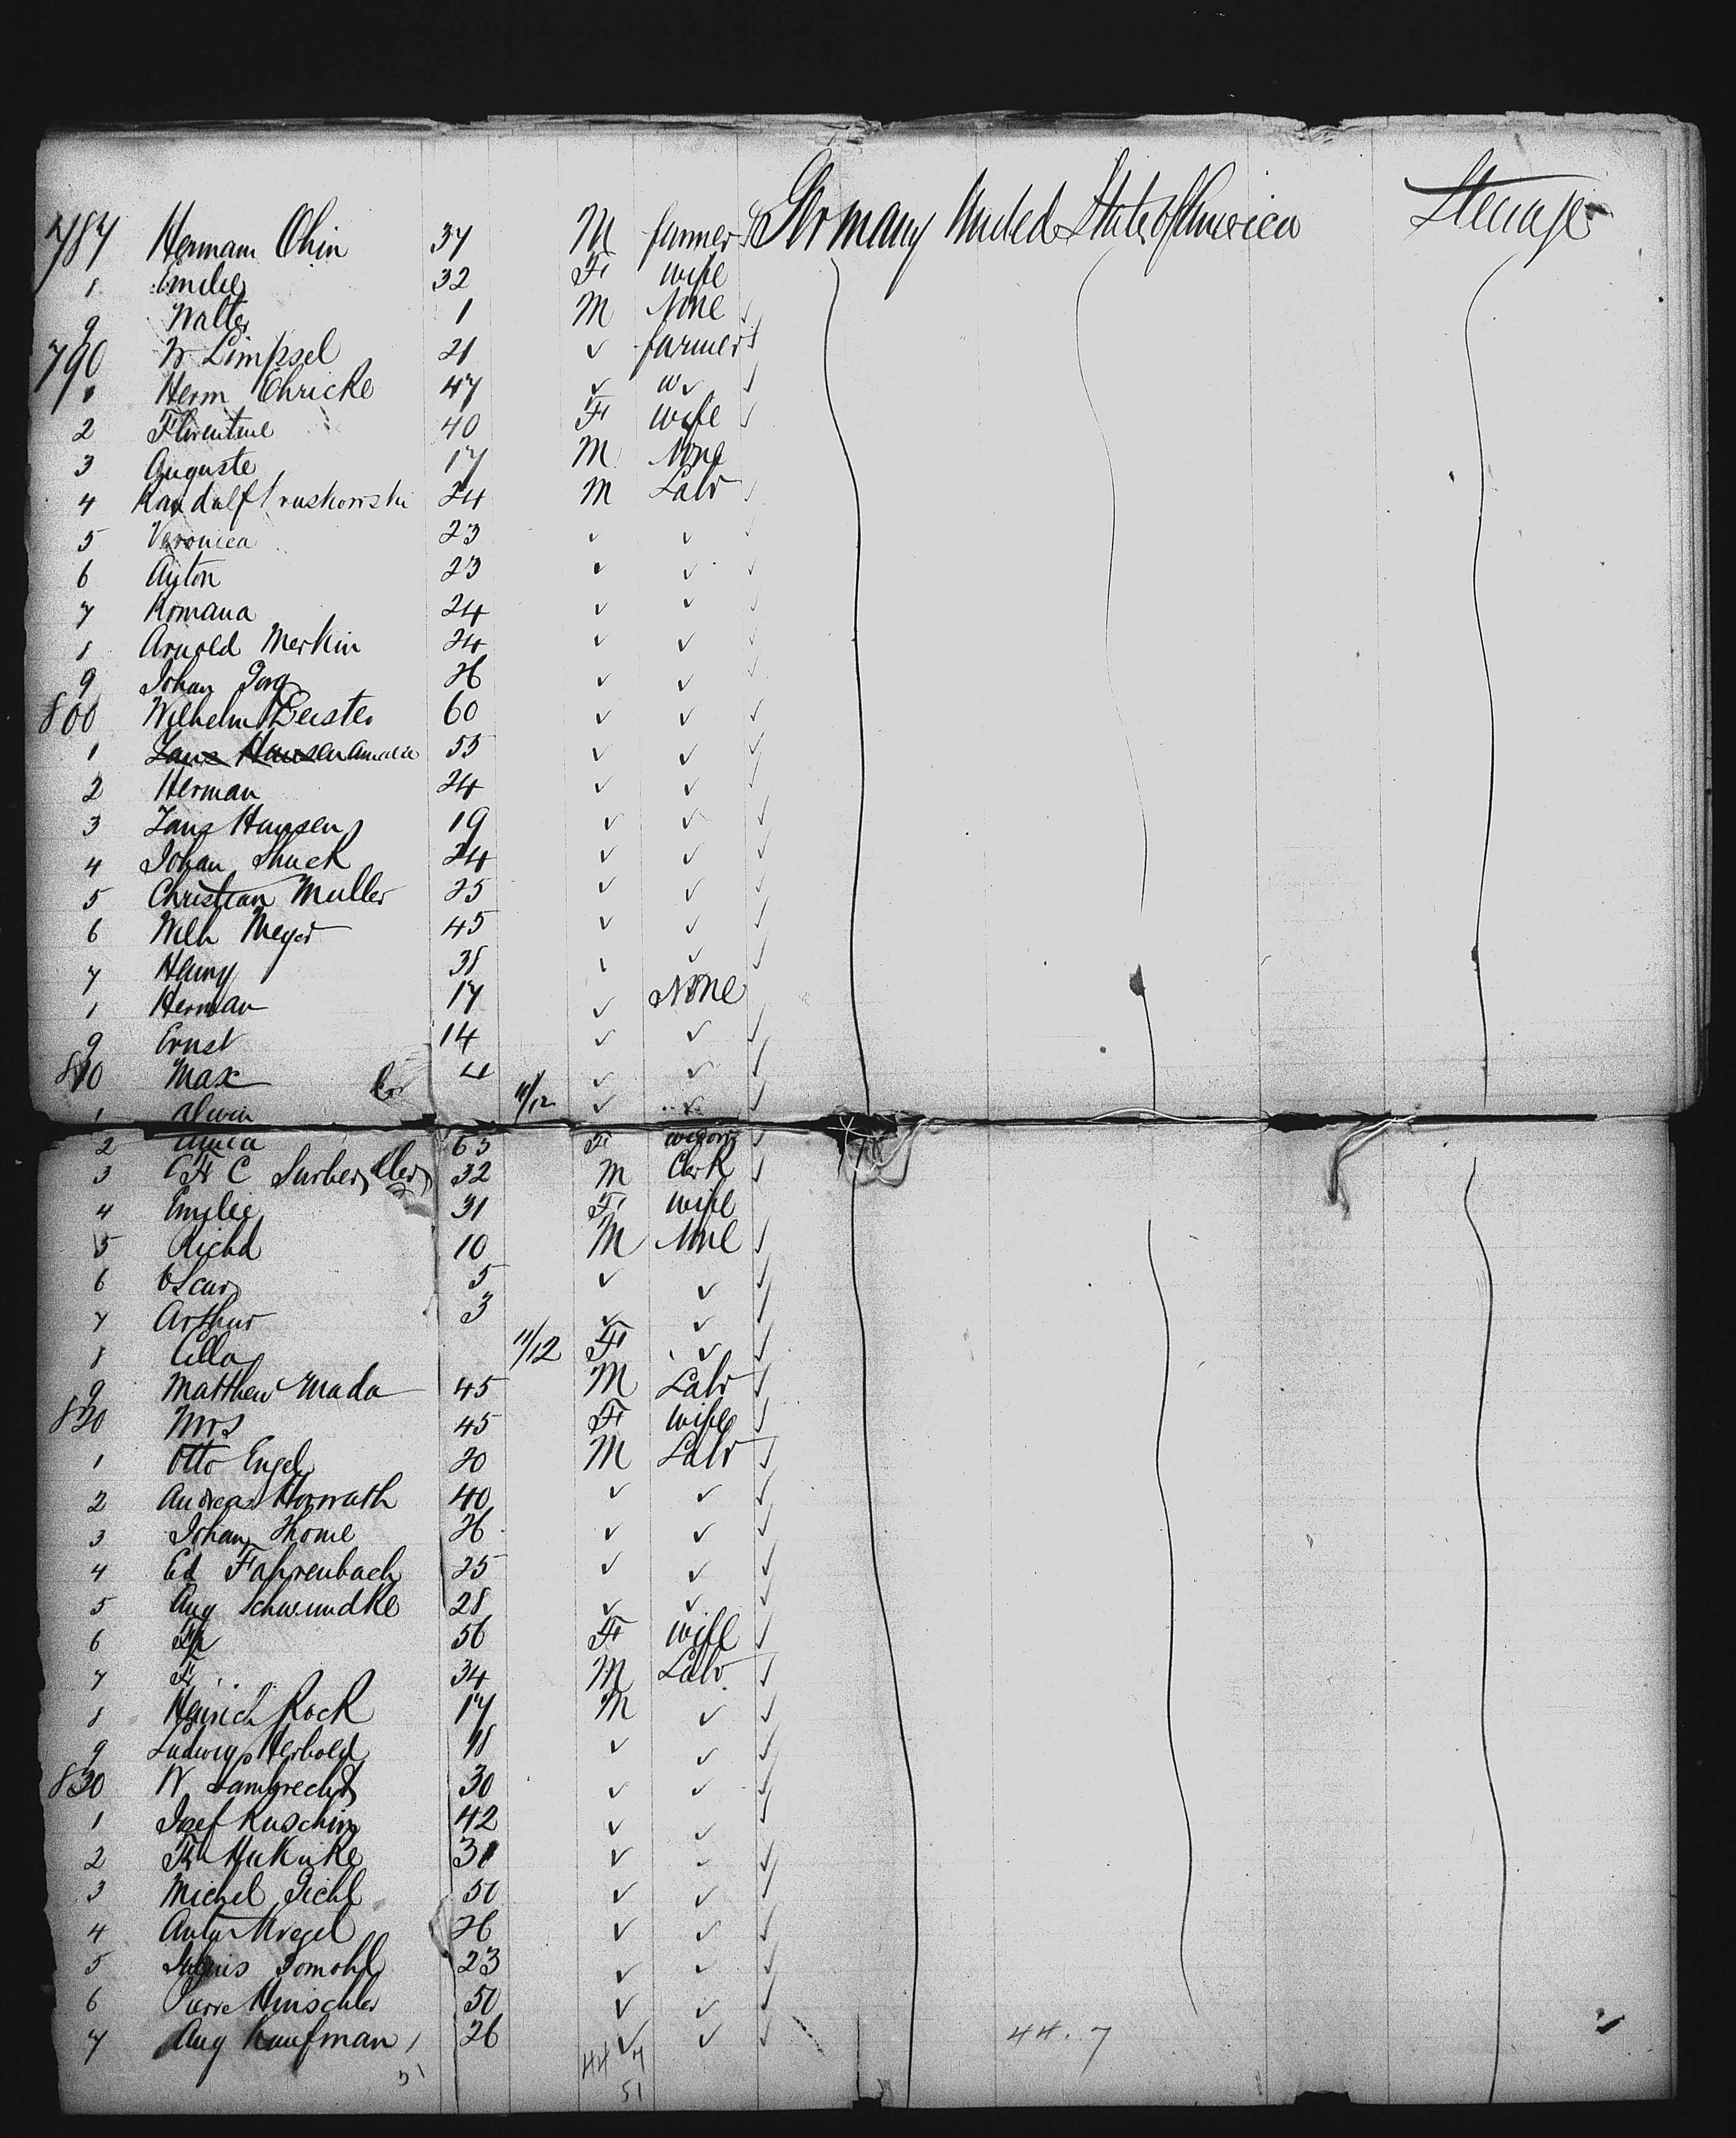 787 Hermam Ohin 37 M farmer Germany United States of America Steuage
8 Emilie 32 F wife
9 Walter 1 M None
790 W Limpsel 21 ✓ farmer
1 Herm Chricke 47 ✓ ✓
2 Florentine 40 F wife
3 Auguste 17 M None
4 24 M Labr
5 Veronica 23 ✓ ✓
6 Anton 23 ✓ ✓
7 Romana 24 ✓ ✓
8 Arnold Merkin 24 ✓ ✓
9 Johan Jorg 26 ✓ ✓
800 Wilhelm Leister 60 ✓ ✓
1 Lans Hansen Amalie 55 ✓ ✓
2 Herman 24 ✓ ✓
3 Lans Hansen 19 ✓ ✓
4 Johan Shuck 24 ✓ ✓
5 Christian Muller 25 ✓ ✓
6 Wilh Meyer 45 ✓ ✓
7 Henny 38 ✓ ✓
8 Herman 17 ✓ None
9 Ernst 14 ✓ ✓
810 Max 4 ✓ ✓
1 Alwin 11/12 ✓ ✓
2 63 F
3 C Surber 32 M Clerk
4 Emilie 31 F wife
5 Richd 10 M None
6 Oscar 5 ✓ ✓
7 Arthur 3 ✓ ✓
8 Cilla 11/12 F ✓
9 Matthew Mada 45 M Labr
820 Mrs 45 F wife
1 Otto Engel 20 M Labr
2 Andreas Horwath 40 ✓ ✓
3 Johan Thome 26 ✓ ✓
4 Ed Fahrenbach 25 ✓ ✓
5 Aug Schwundke 28 ✓ ✓
6 Fr 56 F wife
7 Fr 34 M Labr
8 Heinrich Rock 17 M ✓
9 Ludwig Herbold 18 ✓ ✓
830 W Lambrecht 30 ✓ ✓
1 Josef Ruschin 42 ✓ ✓
2 Fr 31 ✓ ✓
3 Michel Pichl 50 ✓ ✓
4 Anton Kregel 26 ✓ ✓
5 Julius Tomohl 23 ✓ ✓
6 Pierre Hinschler 50 ✓ ✓
7 Aug Kaufman 26 ✓ ✓
44 . 7
44 7
51
51